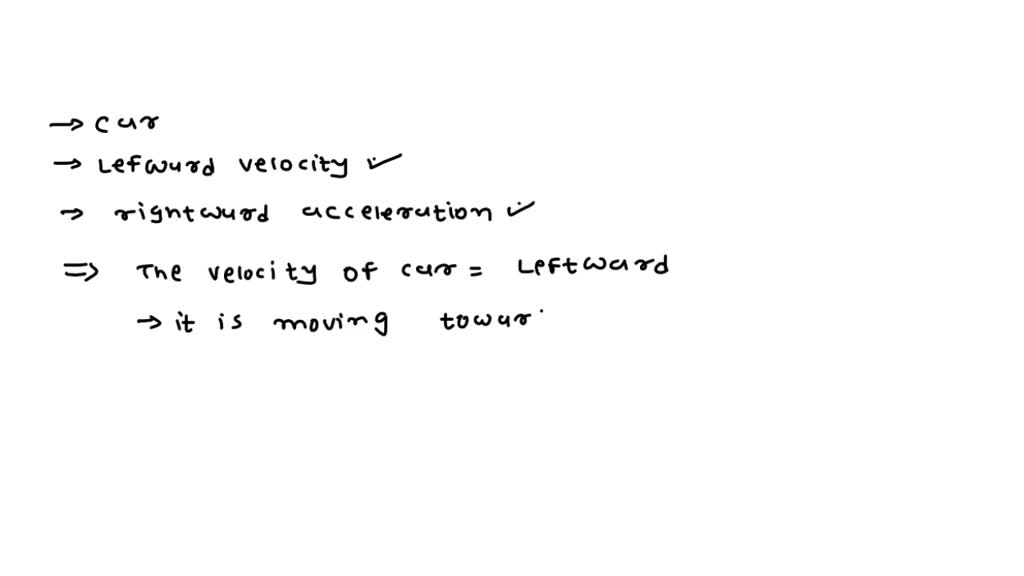 → car
→ Lefward velocity ✓
→ rightward acceleration ✓
⇒ The velocity of car = Leftward
→ it is moving towar